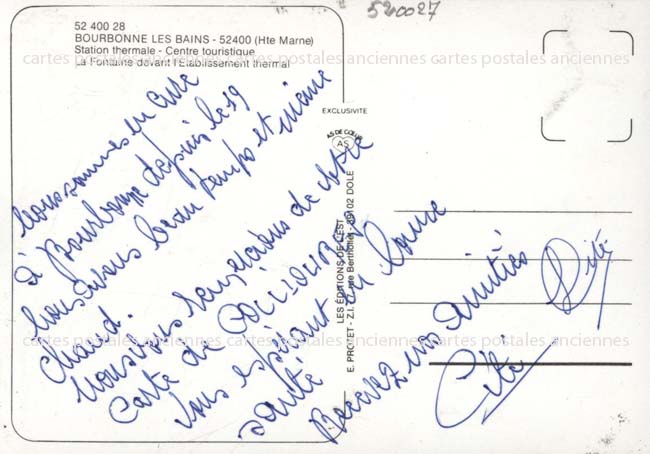 52 400 28
BOURBONNE LES BAINS - 52400 (Hte Marne)
Station thermale - Centre touristique
La Fontaine devant l'Etablissement thermal
520027
cartes postales anciennes cartes postales anciennes cartes postales anciennes cartes postales anciennes
EXCLUSIVITE
AS DE CŒUR
AS
LES ÉDITIONS DE L'EST
E. PROTET - Z.I. rue Berthollet - 39102 DOLE
Nous sommes en cure
à Bourbonne depuis le 19
Nous avons beau temps et même
chaud.
Nous vous remercions de votre
carte de COLLIOURE
Vous espérant en bonne
santé
Recevez nos amitiés
cartes postales anciennes cartes postales anciennes cartes postales anciennes cartes postales anciennes